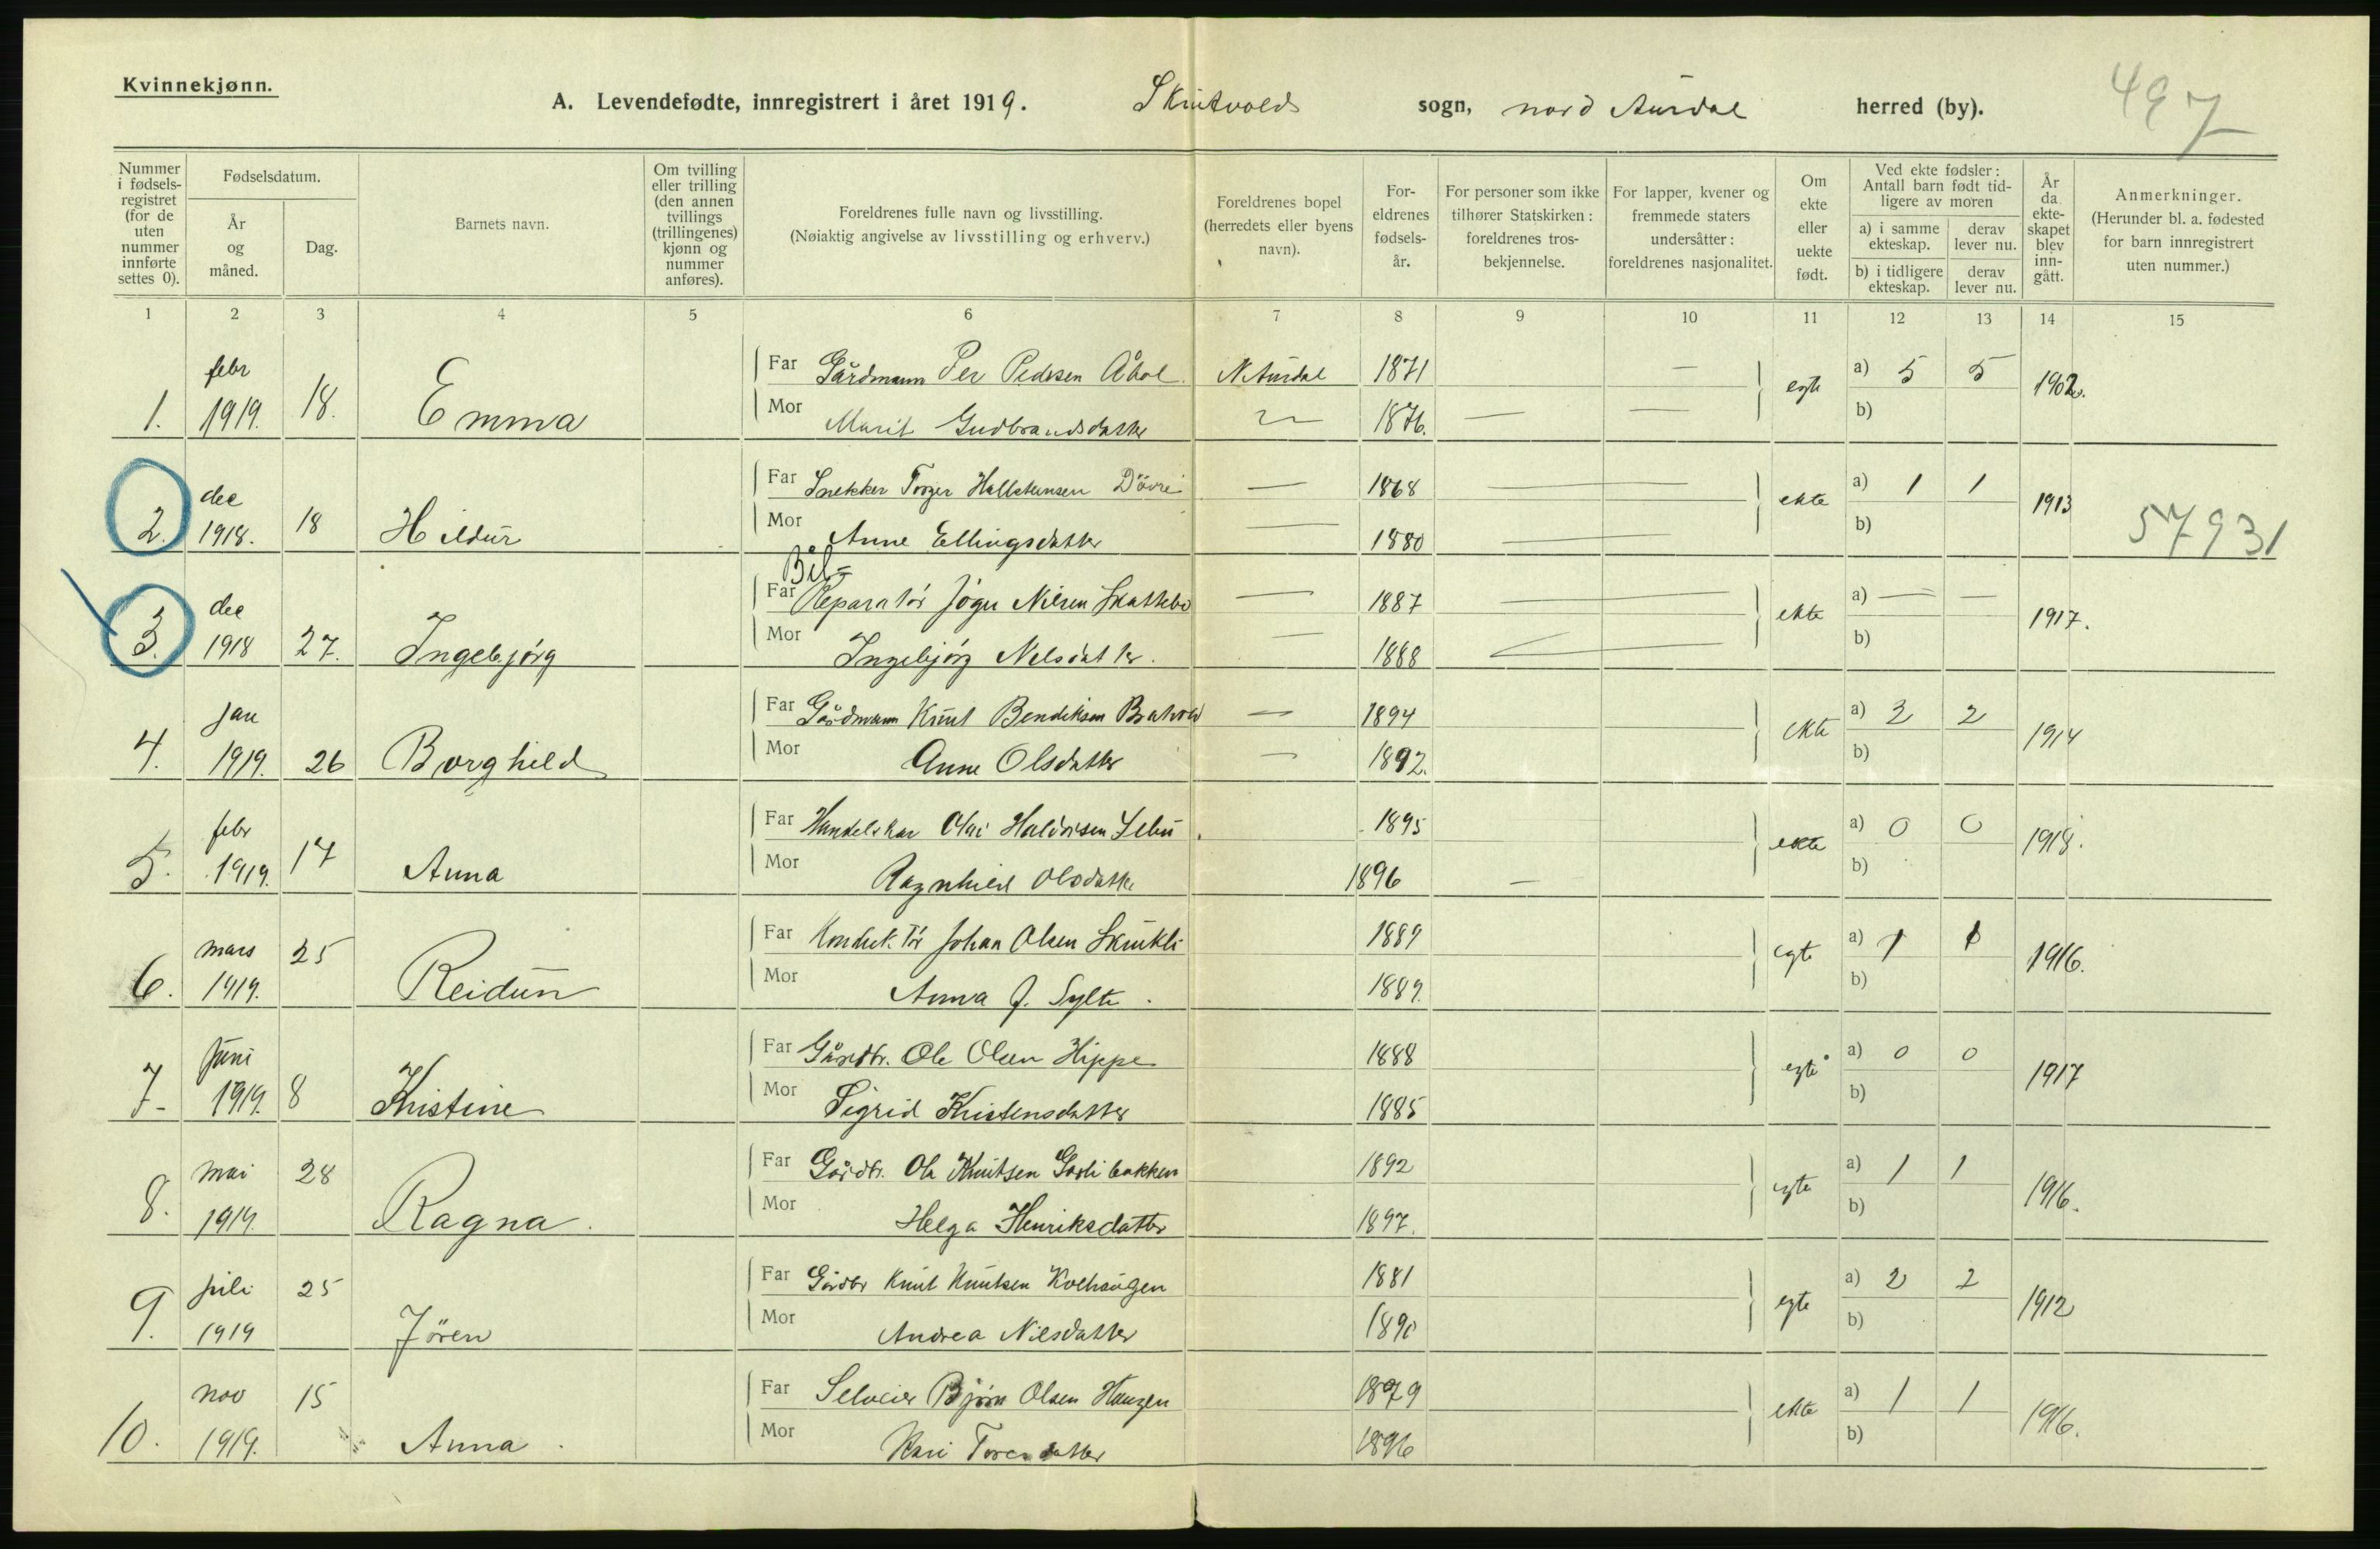 Kvinnekjønn.
A. Levendefødte, innregistrert i året 1919. Skrutvolds sogn, nord Aurdal herred (by). 497
Nummer i fødselsregistret (for de uten nummer innførte settes 0).
Fødselsdatum.
År og måned.
Dag.
Barnets navn.
Om tvilling eller trilling (den annen tvillings (trillingenes) kjønn og nummer anføres).
Foreldrenes fulle navn og livsstilling.
(Nøiaktig angivelse av livsstilling og erhverv.)
Foreldrenes bopel (herredets eller byens navn).
Foreldrenes fødselsår.
For personer som ikke tilhører Statskirken: foreldrenes trosbekjennelse.
For lapper, kvener og fremmede staters undersåtter: foreldrenes nasjonalitet.
Om ekte eller uekte født.
Ved ekte fødsler: Antall barn født tidligere av moren
a) i samme ekteskap.
derav lever nu.
b) i tidligere ekteskap.
derav lever nu.
År da ekteskapet blev inngått.
Anmerkninger.
(Herunder bl. a. fødested for barn innregistrert uten nummer.)
1 2 3 4 5 6 7 8 9 10 11 12 13 14 15
1. febr 1919. 18. Emma
Far Gårdmann Per Pedersen Åbol N. Aurdal 1871 — egte a) 5 5 1902.
Mor Marit Gudbrandsdatter 1876. — — b)
2. dec 1918. 18 Hildur
Far Snekker Torger Hallsteinsen Døvre — 1868 — ekte a) 1 1 1913
Mor Anne Ellingsdatter — 1880 — b) 57931
3. dec 1918 27. Ingebjørg
Far Bil= Reparatør Jøger Nilsen Skattebo — 1887 — ekte a) — — 1917.
Mor Ingebjørg Nelsdatter. — 1888 b)
4. jan 1919. 26 Borghild
Far Gårdmann Knut Bendiksen — 1894 ekte a) 2 2 1914
Mor Anne Olsdatter — 1892. b)
5. febr 1919. 17 Anna
Far Olai Haldorsen 1895 ekte a) 0 0 1918.
Mor Ragnhild Olsdatter 1896 — b)
6. mars 1919. 25 Reidun
Far Konduktør Johan Olsen 1889 egte a) 1 1 1916.
Mor Anna J. Sylte. 1889. b)
7. Juni 1919. 8 Kristine
Far Gårdbr. Ole Olsen Hippe 1888 egte a) 0 0 1917
Mor Sigrid Kristensdatter 1885 b)
8. mai 1919. 28 Ragna.
Far Gårdbr. Ola Knutsen Garlibakken 1892 egte a) 1 1 1916.
Mor Helga Henriksdatter 1897. b)
9. juli 1919 25 Jören
Far Gårdbr Knut Knutsen Kolhaugen 1881 egte a) 2 2 1912
Mor Andrea Nilsdatter 1890 b)
10. nov 1919. 15 Anna.
Far Selveier Bjørn Olsen Haugen 1879 ekte a) 1 1 1916.
Mor Kari 1896 b)